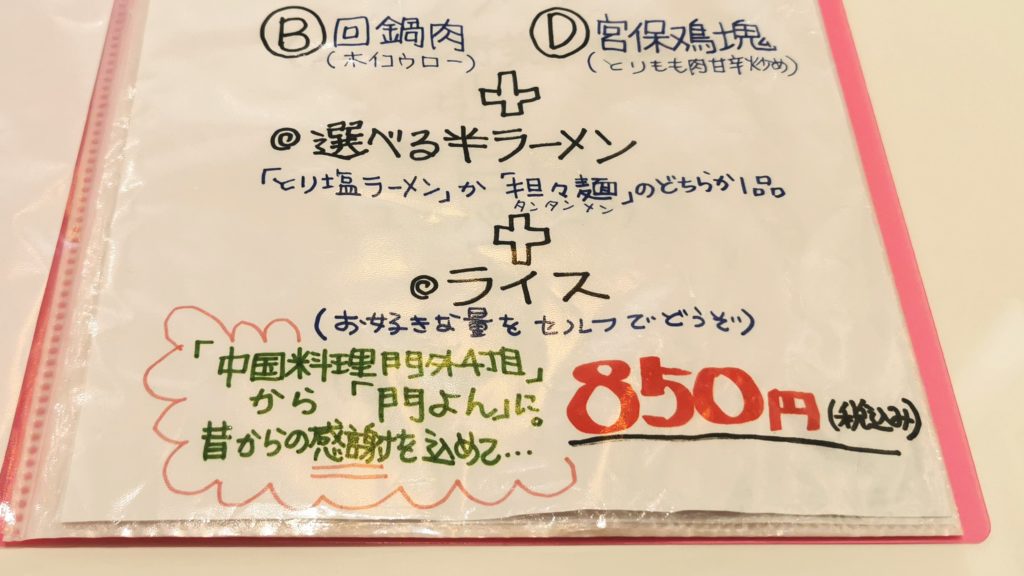 Ⓑ回鍋肉 Ⓓ宮保鶏塊
(ホイコウロー) (とりもも肉甘辛炒め)
+
◎選べる半ラーメン
「とり塩ラーメン」か「担々麺」のどちらか1品
タンタンメン
+
◎ライス
(お好きな量をセルフでどうぞ)
「中国料理門外4丁目」
から「門よん」に。
昔からの感謝を込めて…
850円(税込み)